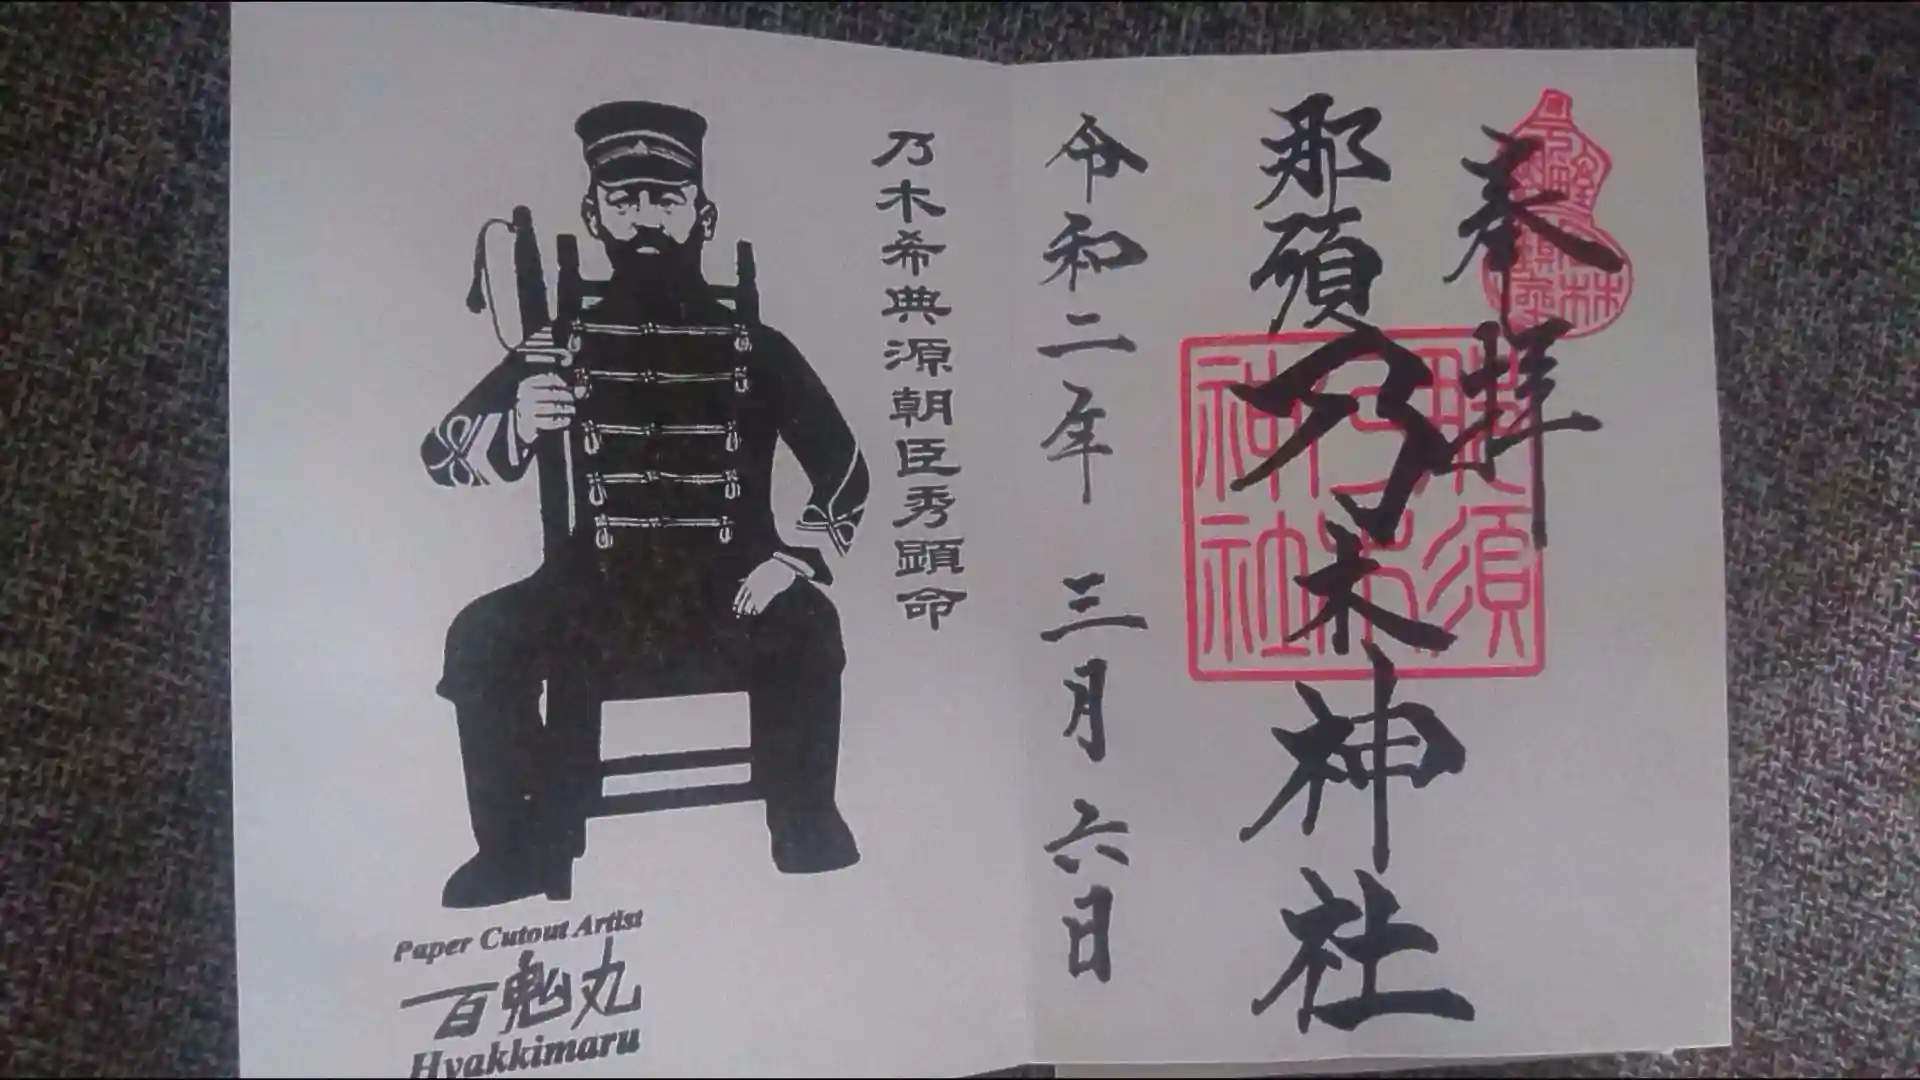 奉拝
那須乃木神社
那須
乃木
神社
令和二年 三月六日
乃木希典源朝臣秀顕命
Paper Cutout Artist
百鬼丸
Hyakkimaru